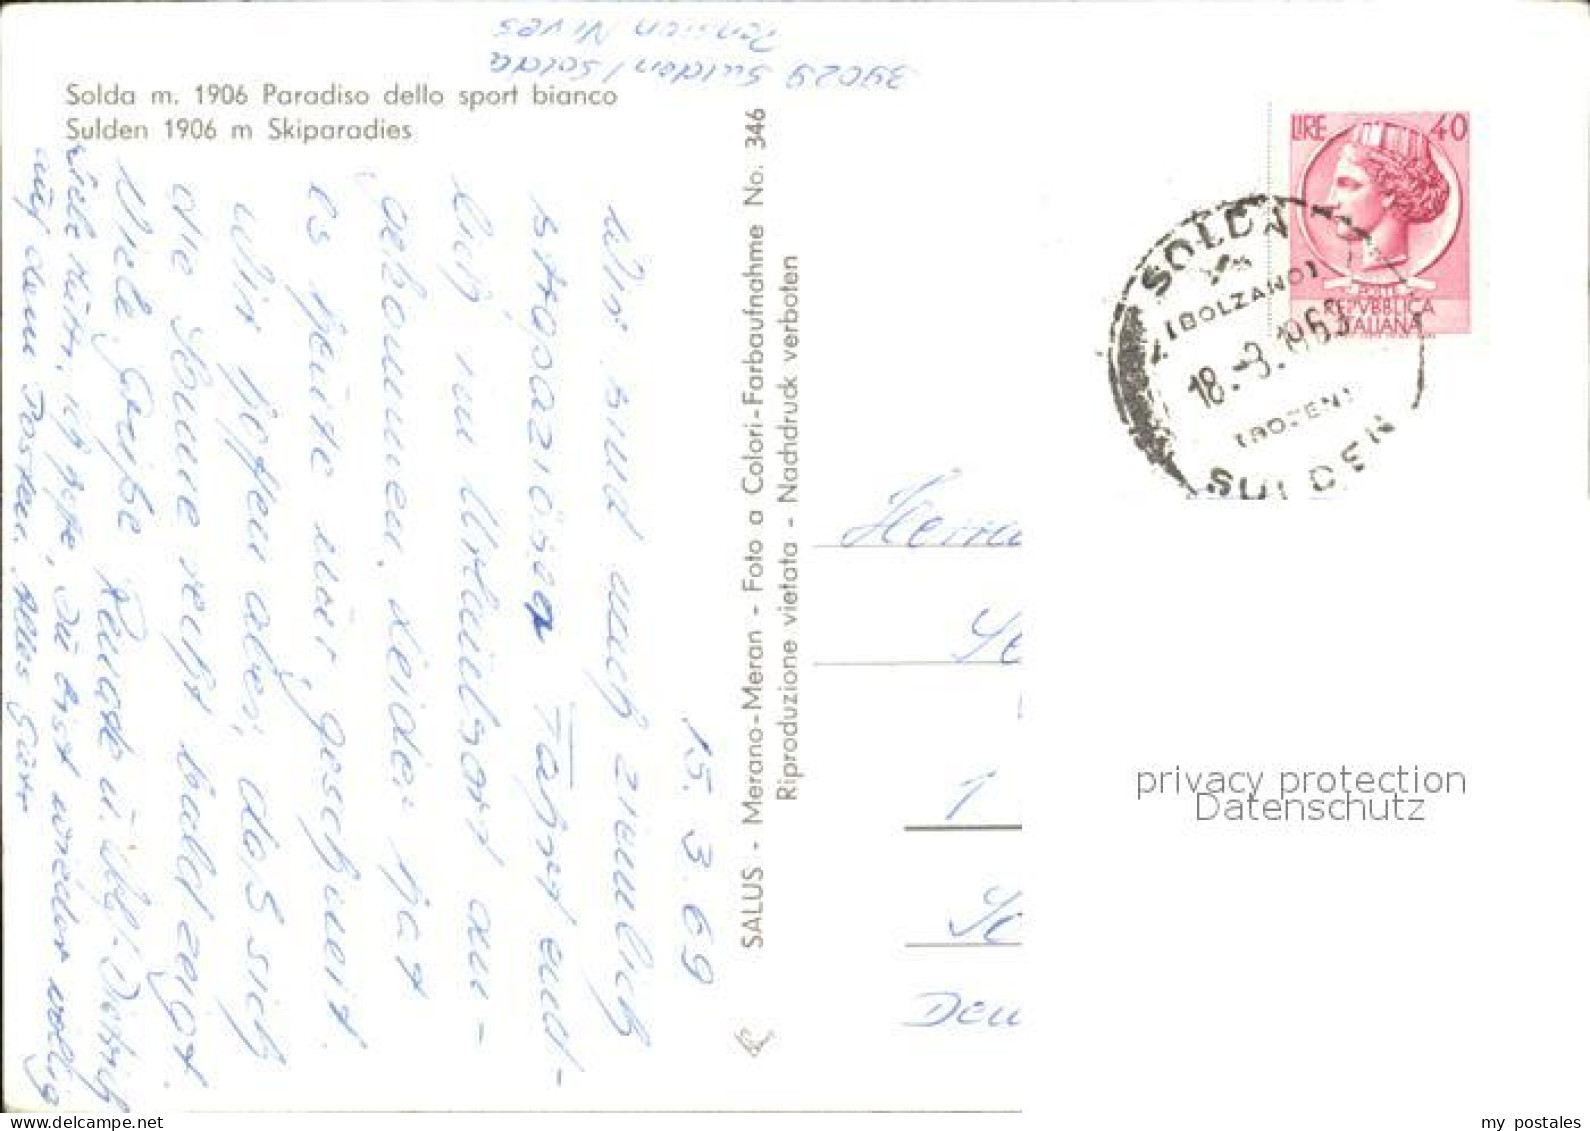 Pension Nives
39029 Sulden/Solda
Solda m. 1906 Paradiso dello sport bianco
Sulden 1906 m Skiparadies
15. 3. 69
Wir sind nach ziemlich
strapaziöser Fahrt end-
lich im Urlaubsort an-
gekommen. Leider hat
es heute nur geschneit.
Wir hoffen aber, daß sich
die Sonne recht bald zeigt.
Viele Grüße Renate u.
ich hoffe, Du bist wieder völlig
auf dem Posten. Alles Gute
SALUS - Merano-Meran - Foto a Colori-Farbaufnahme No. 346
Riproduzione vietata - Nachdruck verboten
LIRE 40
POSTE
REPVBBLICA
ITALIANA
SOLDA
(BOLZANO)
18.-3.1969
(BOZEN)
SULDEN
Herrn
1
Deu
privacy protection
Datenschutz
my_postales